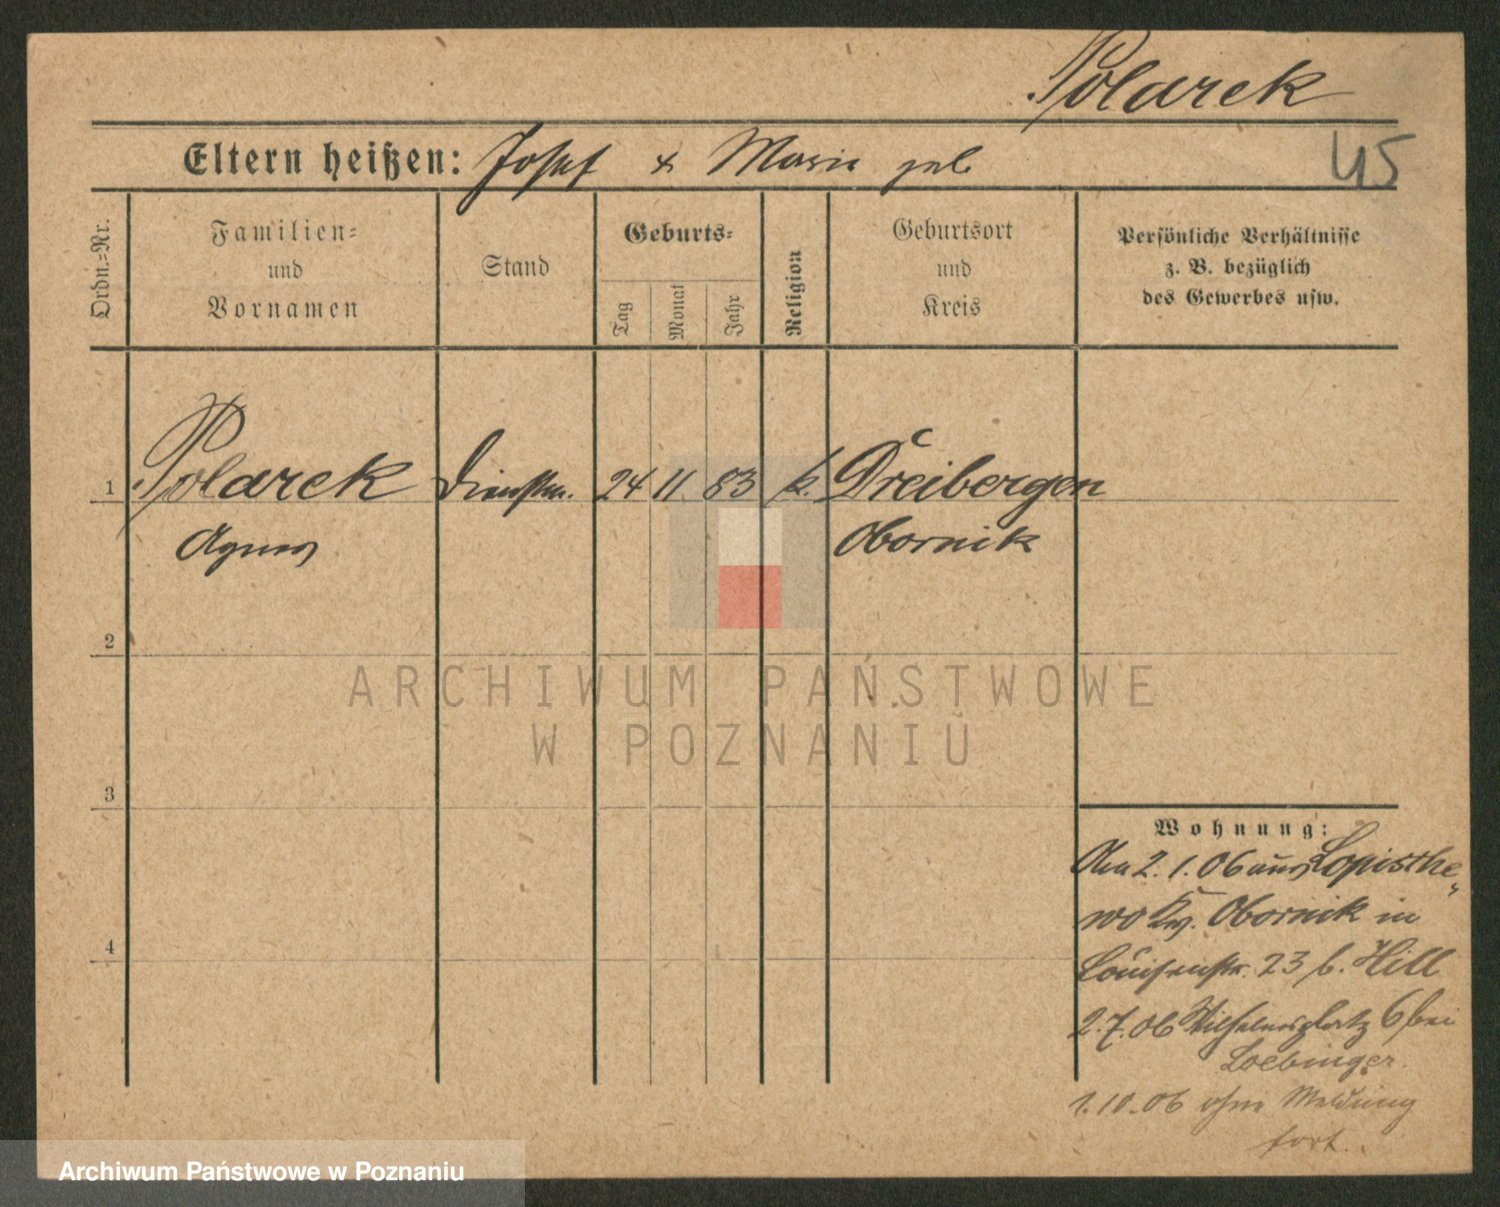 Polarek
45
Eltern heißen: Josef & Marie geb
Ordn.-Nr.
Familien-
und
Vornamen
Stand
Geburts-
Tag
Monat
Jahr
Religion
Geburtsort
und
Kreis
Persönliche Verhältnisse
z. B. bezüglich
des Gewerbes usw.
1 Polarek Dienstm. 24 11. 83 k. Dreibergen
Agnes Obornik
2
ARCHIWUM PAŃSTWOWE
W POZNANIU
3
Wohnung:
2.1.06 aus Lopische
wo Kr. Obornik in
4
Louisenstr. 23 b. Hill
2.7.06 Wilhelmsplatz 6 bei
Loebinger.
1.10.06 ohne Meldung
fort.
Archiwum Państwowe w Poznaniu